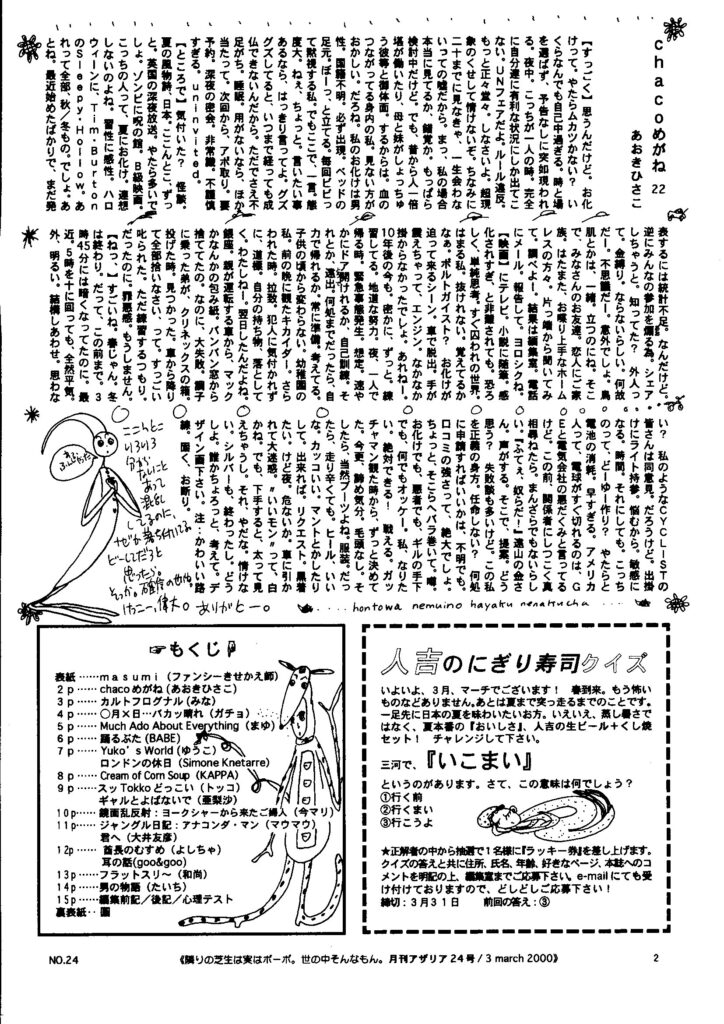 chacoめがね 22
あおきひさこ
【すっごく】思うんだけど。お化
けって、やたらムカつかない？ い
くらなんでも自己中過ぎる。時と場
を選ばず、予告なしに突如現われ
る。夜中、こっちが一人の時。完全
に自分達に有利な状況にしか出てこ
ない。UNフェアだよ。ルール違反。
もっと正々堂々、しなさいよ。超現
象のくせして情けないぞ。ちなみに
二十までに見なきゃ、一生会わな
いっての嘘だから。まっ、私の場合
本当に見てるか、錯覚か。もっぱら
検討中だけど。でも、昔から人一倍
堪が働いたり、母と妹がしょっちゅ
う彼等と御体面。するからは、血の
つながってる身内の私。見ない方が
おかしい。だろね。私のお化けは男
性。国籍不明。必ず出現。ベッドの
足元。ぼーっ、と立てる。毎回ビビっ
て黙視する私。でもここで、一言。態
度大。ねぇ、ちょっと。言いたい事
あるなら、はっきり言ってよ。グズ
グズしてると、いつまで経っても成
仏できないんだから。ただでさえ不
足がち。睡眠。用がないなら、ほか
当たって。次回から、アポ取り。要
予約。深夜の密会。非常識。不謹慎
すぎる。uninvited.
【ところで】気付いた？ 怪談。
夏の風物詩。日本。ここんとこ、ずっ
と。英国の深夜放送。やたら多いで
しょ。ゾンビに呪の館。B級映画。
こっちの人って、夏にお化け。連想
しないのよね。習性に感性。ハロ
ウィーンに、Tim.Burton
のSleepy.Hollow。あ
れって全部、秋／冬もの。でしょ。あ
とね。最近始めたばかりで、まだ発
表するには統計不足。なんだけど。
逆にみんなの参加を煽る為。シェア。
しちゃうと。知ってた？ 外人っ
て、金縛り。ならないらしい。何故
だー。不思議だー。意外でしょ。鳥
肌とかは、一緒。立つのにね。そこ
で、みなさんのお友達。恋人にご家
族。はたまた、お喋り上手なホーム
レスの方々。片っ端から聞いてみ
て。調べよー。結果は編集室。電話
にメール。報告して。ヨロシクね。
【映画】にテレビ。小説に随筆。感
化されすぎ。と非難されても。恐ろ
しく、単純思考。すぐ囚われの世界。
はまる私。抜けれない。覚えてるか
なぁ。ポルトガイスト？ お化けが
迫って来るシーン。車で脱出。手が
震えちゃって、エンジン。なかなか
掛からなかったでしょ。あれねー。
10年後の今も。密かに、ずっと。練
習してる。地道な努力。夜、一人で
帰る時。緊急事態発生。想定。速や
かにドア開けれるか。自己訓練。そ
れとか。遠出。何処まででだったら、自
力で帰れるか。常に準備。考えてる。
子供の頃から変わらない。幼稚園の
私。前の晩に観たキカイダー。さら
われた時。拉致。犯人に気付かれず
に、道標。自分の持ち物。落として
く。わたしねー。翌日したんだよね。
銀座。親が運転する車から、マック
かなんかの包み紙。バンバン窓から
捨ててたの。なのに、大失敗。調子
に乗った弟が、クリネックスの箱。
投げた時。見つかった。車から降り
て全部拾いなさい、って。すっごい
叱られた。ただ練習するつもり。
だったのに。罪悪感。もうしません。
【ねっ】すごいね。春じゃん。冬
は終わり。だって、この前まで、3
時45分には暗くなってたのに。最
近。5時を十に回っても、全然平気。
外、明るい。結構しあわせ。思わな
い？ 私のようなCYCLISTの
皆さんは同意見。だろうけど。出掛
けにライト持参。悩むから。敏感に
なる。時間。それにしても。こっち
のって、どーゆー作り？ やたらと
電池の消耗。早すぎる。アメリカ
人って、電球がすぐ切れるのは、G
E‐電気会社の悪だくみ。と言ってる
けど。この前、関係者にしつこく真
相尋ねたら、まんざらでもないらし
い。『ふてぇ、奴らだー』遠山の金さ
ん。声がする。そこで。提案。どう
思う？ 失敗談も多いけど。この私
を正義の身方。任命しない？ 何処
に申請すればいいかは、不明でも。
口コミの強さって、絶大でしょ。
ちょっと。そこらヘバラ巻いて。噂。
お化けでも、悪者でも、ギルの手下
でも。何でもオッケー。私、なりた
い。絶対できる！ 戦える。ガッ
チャマン観た時から、ずっと決めて
た。今更、諦め気分。毛頭なし。そ
したら、当然ブーツよね。服装。だっ
たら、走り辛くても。ヒール。いい
な。カッコいい。マントとかしたり
して。出来れば、リクエスト。黒着
たい。けど夜、危ないか。車に引か
れて大迷惑。"いいモン"って、白
かね。でも、下手すると、太って見
えちゃうし。それ、やだな。情けな
い。シルバーも、終わったし。どう
しよ。誰かちょろっと、考えて。デ
ザイン画下さい。注：かわいい路
線。固く、お断り。
ここんとこ
いろいろ
混乱
してるのに、
なぜか落ち付いてる。
どーしてだろと
思ったら。
そっか。
けっこー、偉大。
ありがとー。
....hontowa nemuino hayaku nenakucha...
☞もくじ
表紙……masumi（ファンシーきせかえ師）
2 p……chacoめがね（あおきひさこ）
3 p……カルトフログナル（みな）
4 p……〇月×日…バカッ晴れ（ガチョ）
5 p……Much Ado About Everything（まゆ）
6 p……踊るぶた（BABE）
7 p……Yuko's World（ゆうこ）
ロンドンの休日（Simone Knetarre）
8 p……Cream of Corn Soup（KAPPA）
9 p……スッTokkoどっこい（トッコ）
ギャルとよばないで（亜梨沙）
10p……鏡面乱反射：ヨークシャーから来たご婦人（今マリ）
11p……ジャングル日記：アナコンダ・マン（マウマウ）
君へ（大井友彦）
12p……酋長のむすめ（よしちゃ）
耳の話(goo&goo)
13p……フラットスリ〜（和尚）
14p……男の物語（たいち）
15p……編集前記／後記／心理テスト
裏表紙‥圏
人吉のにぎり寿司クイズ
いよいよ、3月、マーチでございます！ 春到来。もう怖い
ものなどありません。あとは夏まで突っ走るまでのことです。
一足先に日本の夏を味わいたいお方。いえいえ、蒸し暑さで
はなく、夏本番の『おいしさ』、人吉の生ビール＋くし焼
セット！ チャレンジして下さい。
三河で、『いこまい』
というのがあります。さて、この意味は何でしょう？
①行く前
②行くまい
③行こうよ
★正解者の中から抽選で1名様に『ラッキー券』を差し上げます。
クイズの答えと共に住所、氏名、年齢、好きなページ、本誌へのコ
メントを明記の上、編集室までご応募下さい。e-mailにても受
け付けておりますので、どしどしご応募下さい！
締切：3月31日 前回の答え：③
NO.24
《隣りの芝生は実はボーボ。世の中そんなもん。月刊アザリア24号/3 march 2000》
2